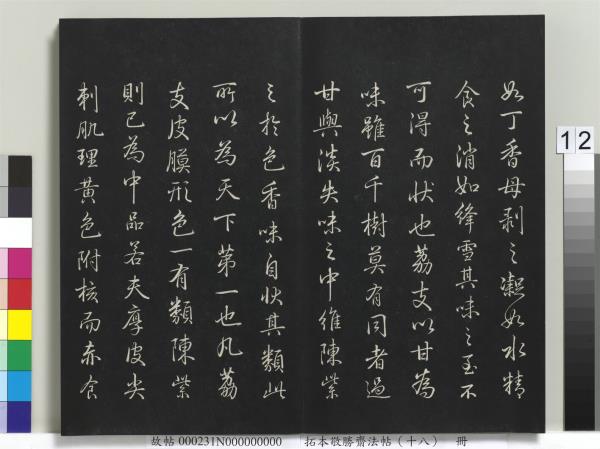 如丁香母剥之凝如水精
食之消如絳雪其味之至不
可得而狀也荔支以甘為
味雖百千樹莫有同者過
甘與淡失味之中維陳紫
之於色香味自状其類此
所以為天下第一也凡荔
支皮膜形色一有類陳紫
則已為中品若夫厚皮尖
刺肌理黄色附核而赤食
12
故帖 000231N000000000 拓本敬勝齋法帖(十八) 冊